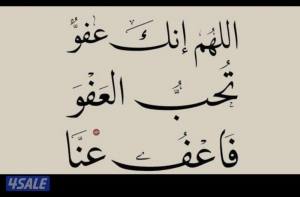 اللهم إنك عفوٌّ
تُحبُّ العَفْوَ
فَاعْفُ عَنَّا
4SALE